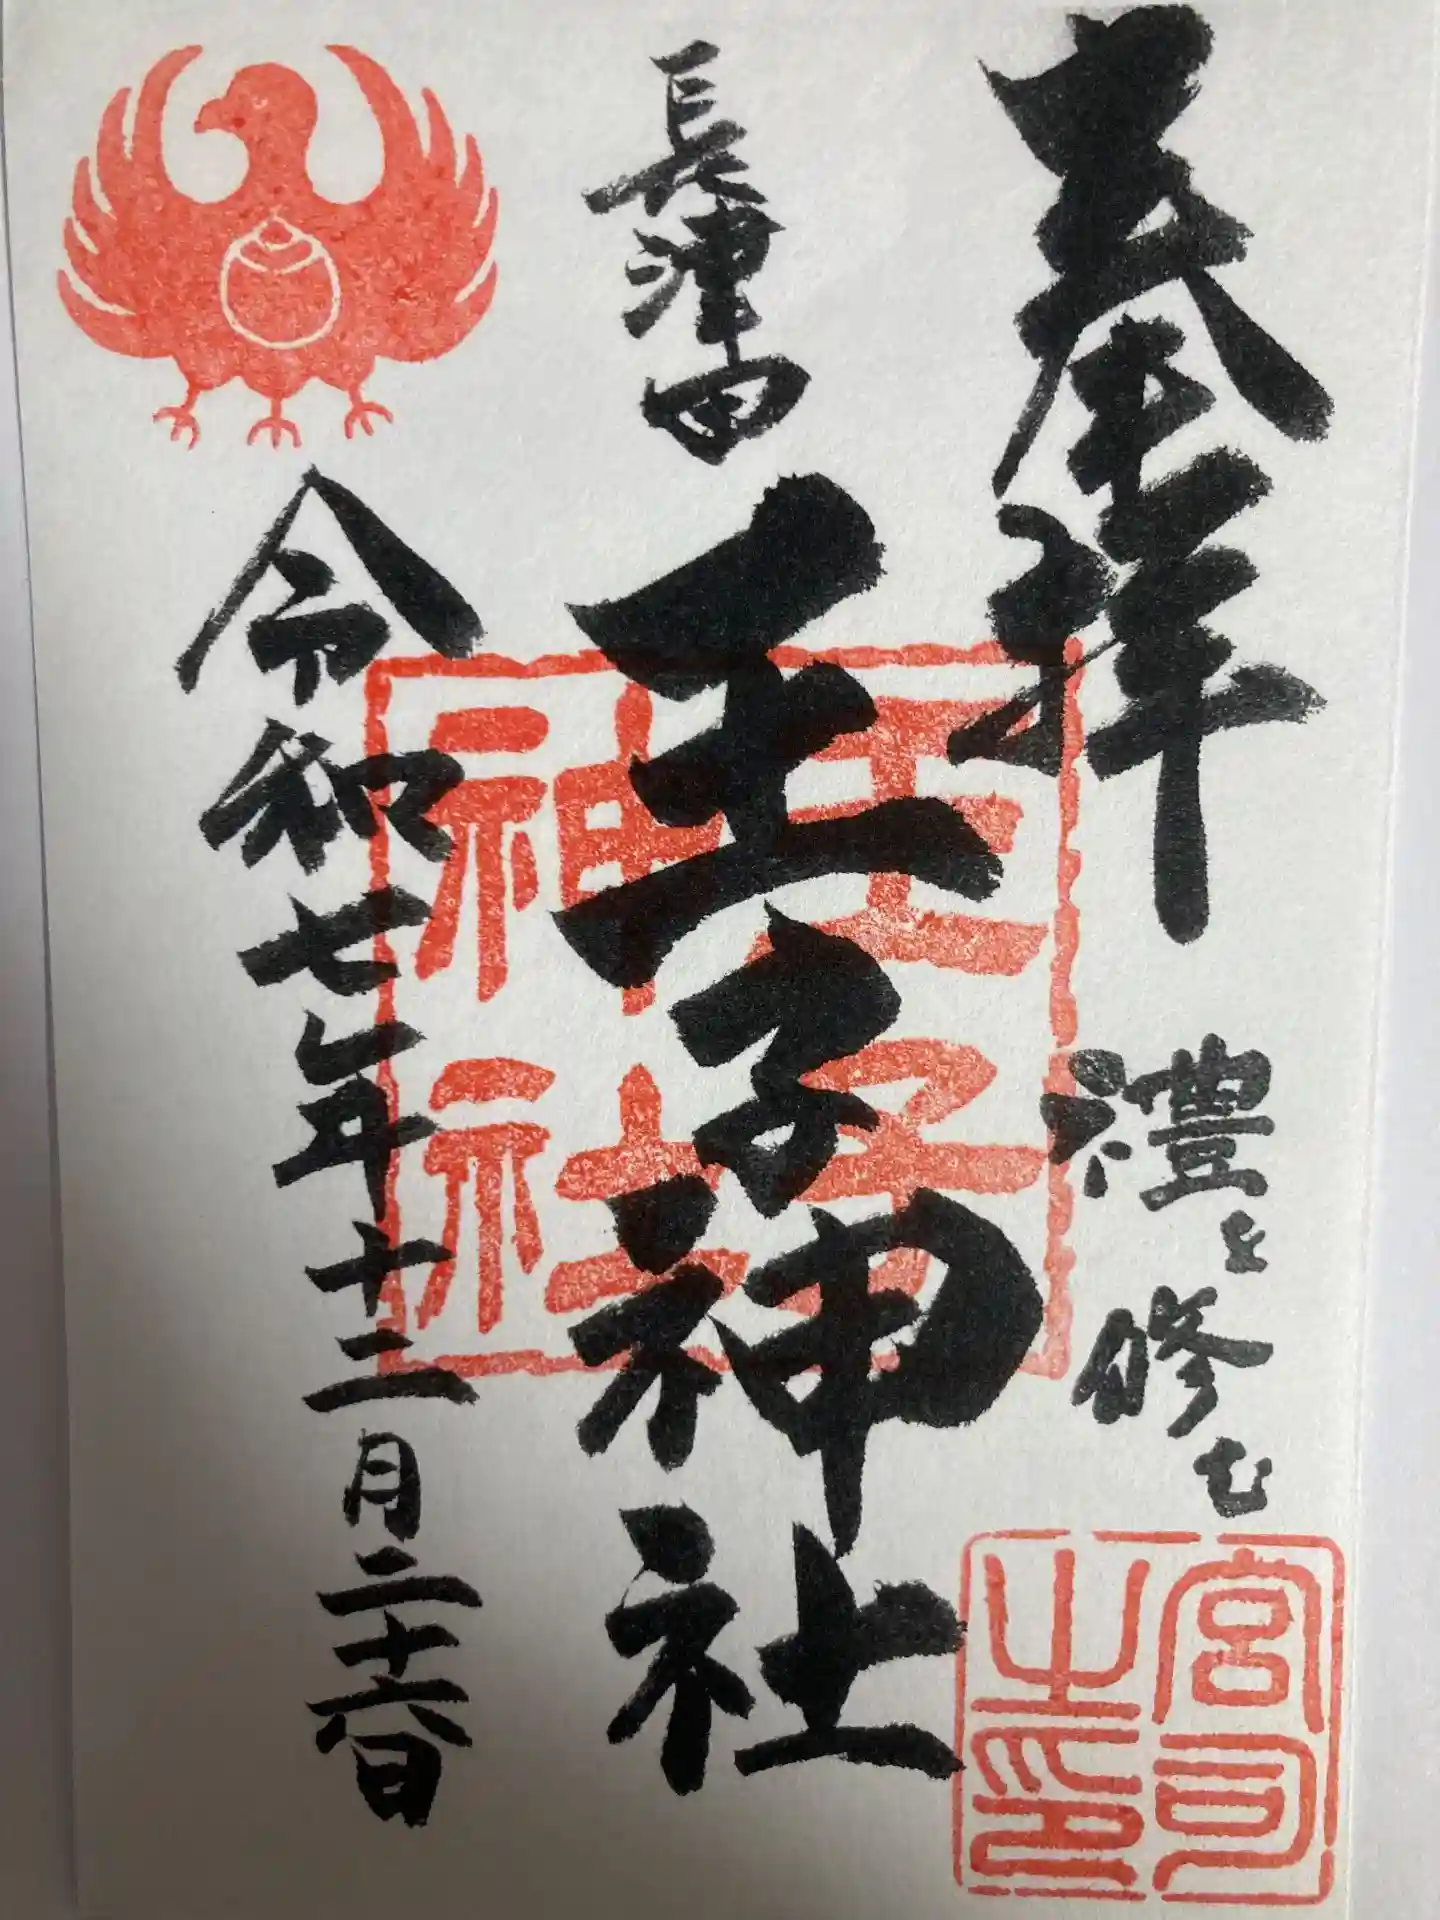 奉拝
禮を修む
宮司
之印
長津田
王子神社
王子
神社
令和七年十二月二十六日